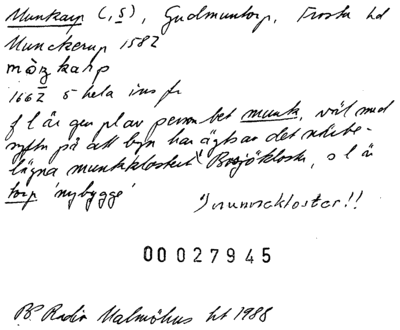 Munkarp (, S), Gudmuntorp, Frosta hd
Munckerup 1582
mòŋkarp
1662 5 hela ins fr
f l är gen pl av personbet munk, väl med
syftn på att byn har ägts av det närbe-
lägna munkklostret¹⁾ Bosjökloster, s l är
torp 'nybygge'
¹⁾nunnekloster!!
00027945
BP Radio Malmöhus ht 1988